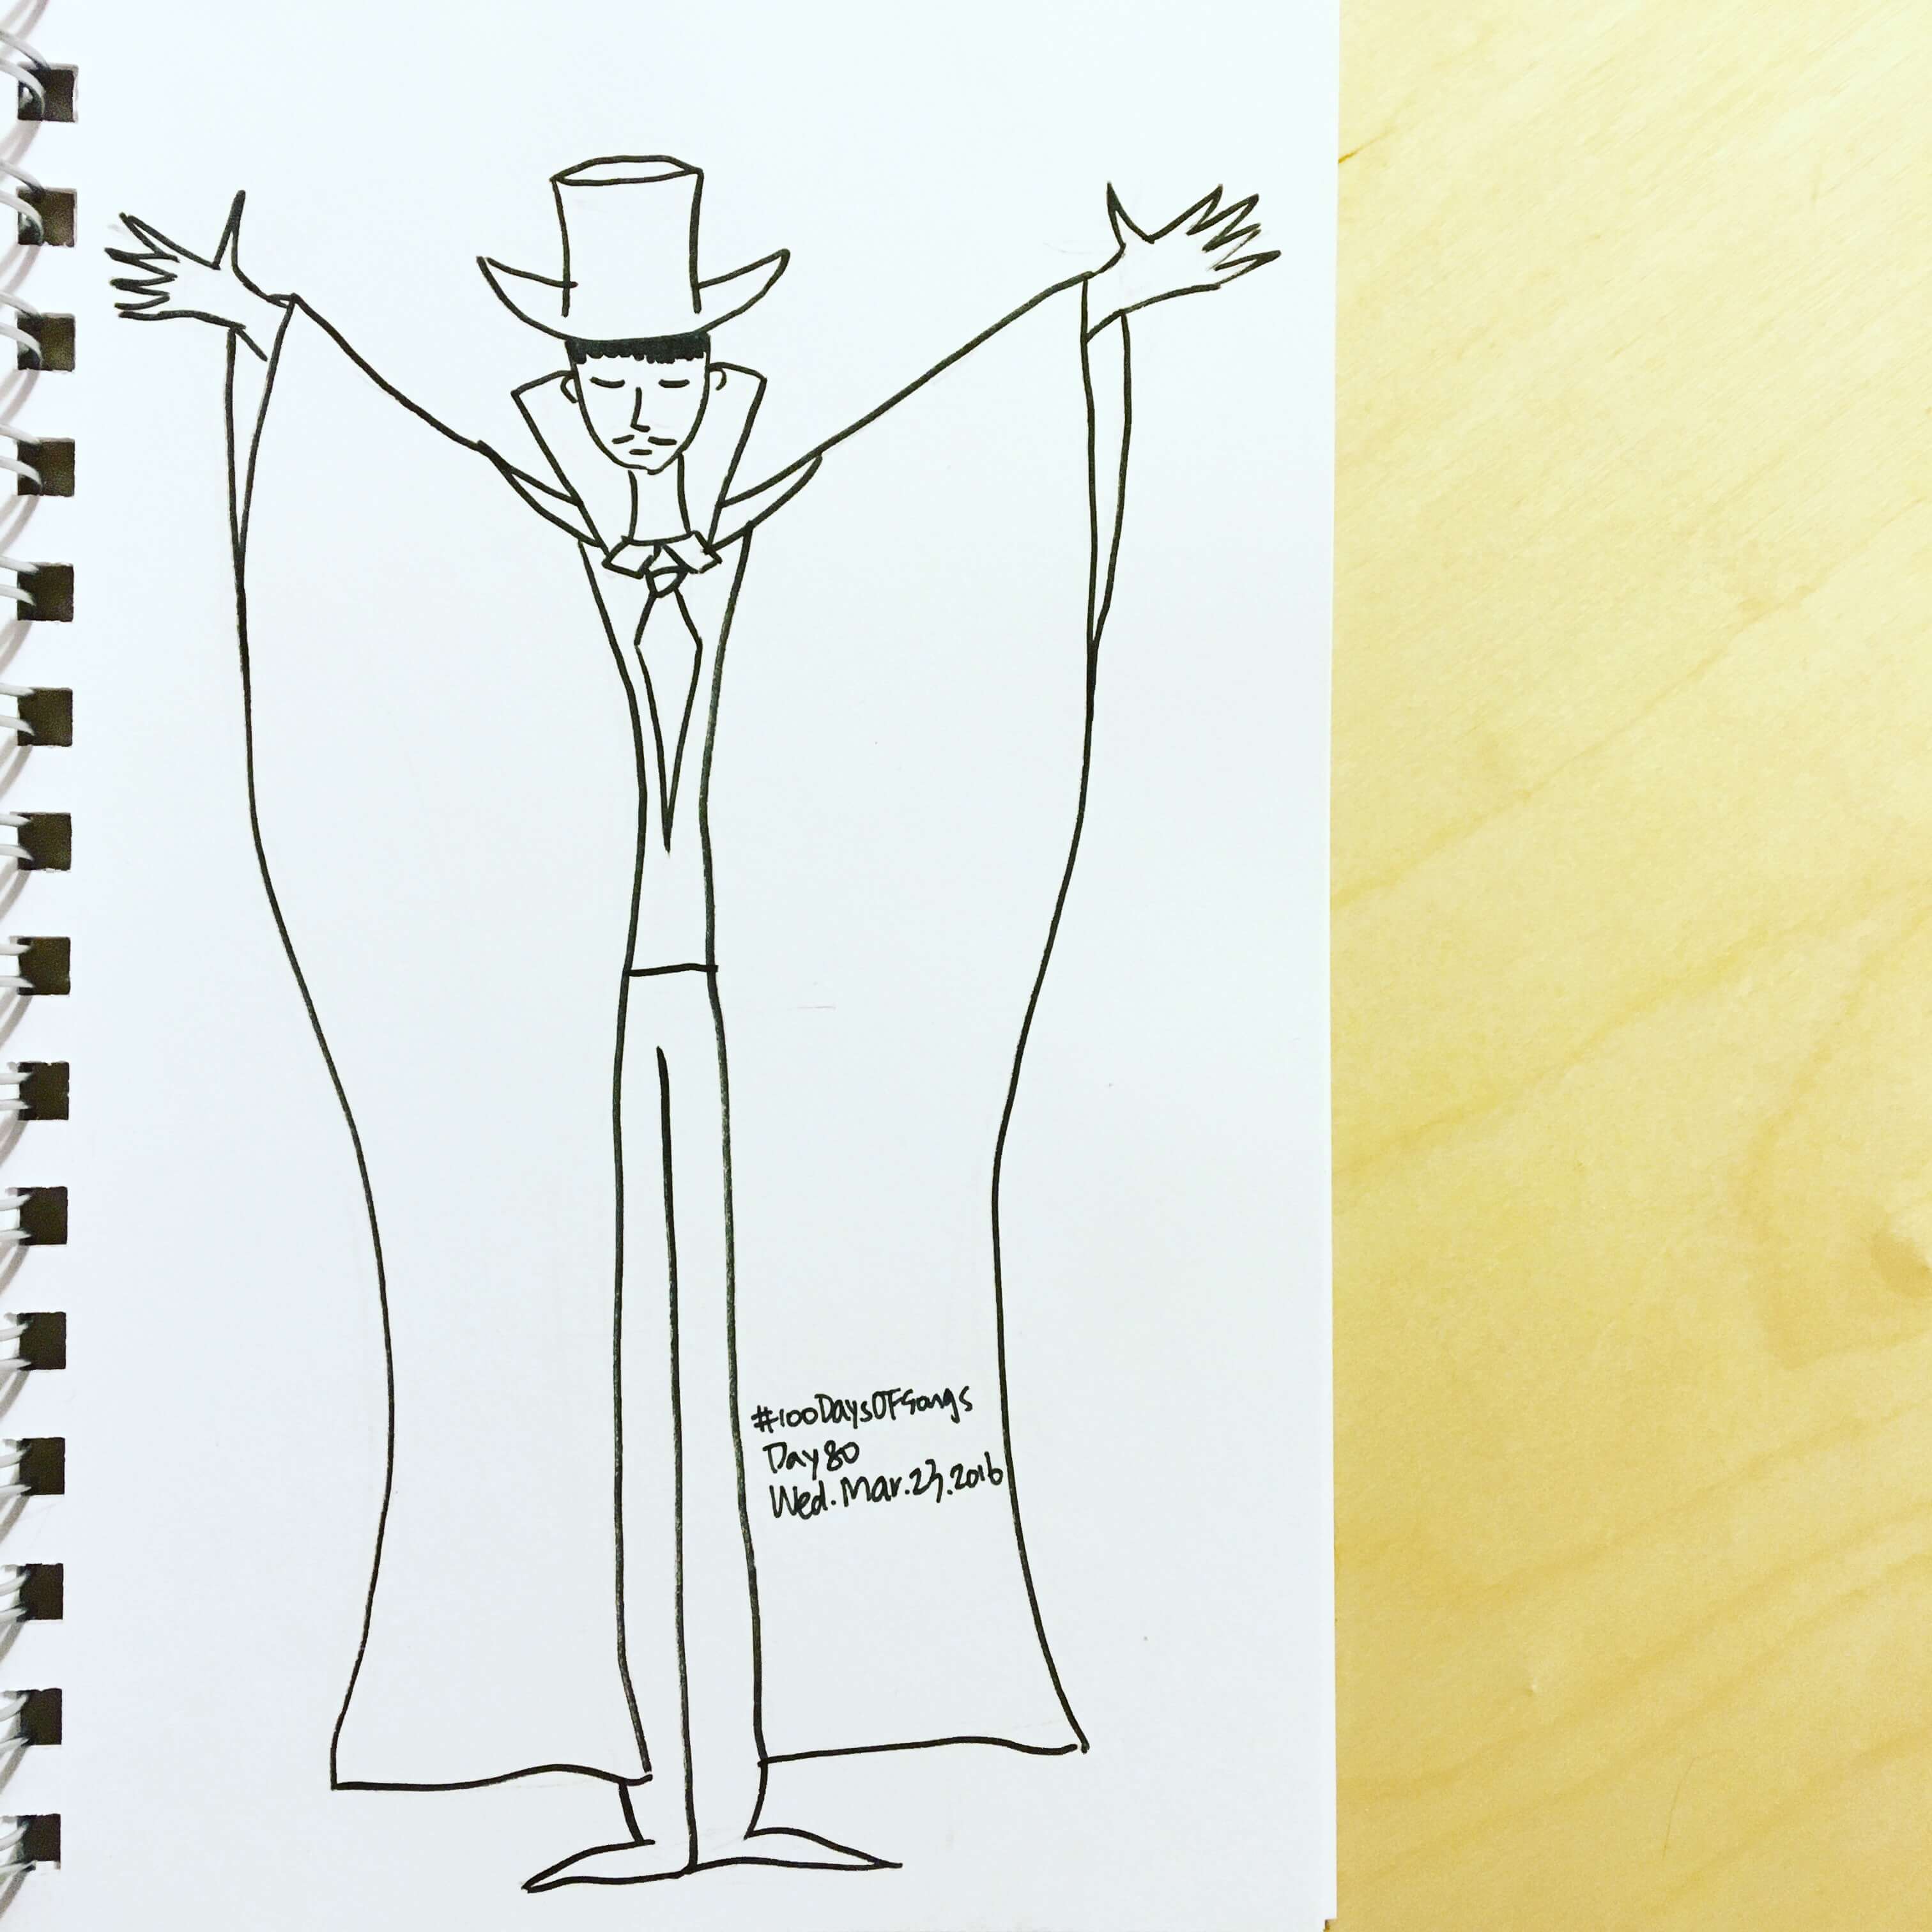 #100DaysOfSongs
Day 80
Wed. Mar. 23. 2016